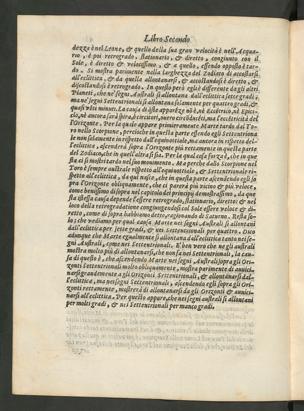 Libro Secondo
dezza è nel Leone, & quello della sua gran velocità è nell'Acqua-
rio, è poi retrogrado, stationario, & diretto, congiunto con il
Sole, è diretto & velocissimo, & a quello, essendo opposto è tar-
do. Si mostra parimente nella larghezza del Zodiaco di accostarsi
all'eclittica, & da quella allontanarsi, & accostandosi è diretto, &
discostandosi è retrogrado. In questo però egli è differente da gli altri
Pianeti, che ne' segni Australi si allontana dall'eclittica sette gradi,
ma ne' segni Settentrionali si allontana solamente per quattro gradi, &
l'Orizonte. Per la quale appare primieramente Marte tardo dal To-
ro nello Scorpione, perciocche in questa parte essendo egli Settentrionale
eclittica, ascenderà sopra l'Orizonte più rettamente in questa parte
del Zodiaco, che in quell'altra sia. Per la qual cosa forza, che in que
sta ei si mostri tardo nel suo movimento. Ma perche dallo Scorpione nel
Toro è sempre australe rispetto all'equinottiale, & Settentrionale ri-
spetto all'eclittica, di qui nasce, che in questa parte ascendendo egli so
pra l'Orizonte obliquamente, che ci parerà più vicino & più veloce,
come benissimo disopra nel capitolo del principio dimostrassimo. da que
sta istessa causa depende l'essere retrogrado, stationario, diretto & nel
loco della retrogradatione congiungendosi col Sole essere veloce & di-
retto, come di sopra habbiamo detto, ragionando di Saturno. Resta so-
lo, che vediamo per qual causa Marte ne i segni Australi si allontani
dall'eclittica per sette gradi, & nei Settentrionali per quattro. Dico
adunque che Marte egualmente si allontana dall'eclittica tanto ne i se-
gni Australi, come nei Settentrionali. E' ben vero che ne gli australi
mostra molto più di allontanarsi, che non fa ne i Settentrionali, la cau-
sa di questo è, che ascendendo Marte ne i segni Australi sopra gli Ori-
zonti Settentrionali molto obliquamente, mostra parimente di auvici-
narsi grandemente a gli Orizonti Settentrionali, & allontanarsi dal-
l'eclittica, ma ne i segni Settentrionali, ascendendo egli sopra gli Ori-
zonti rettamente, mostrerà di allontanarsi da gli Orizonti & auvici-
narsi all'eclittica. Per quello appare, che ne i segni australi si allontani
per molti gradi, & nei Settentrionali per manco gradi.